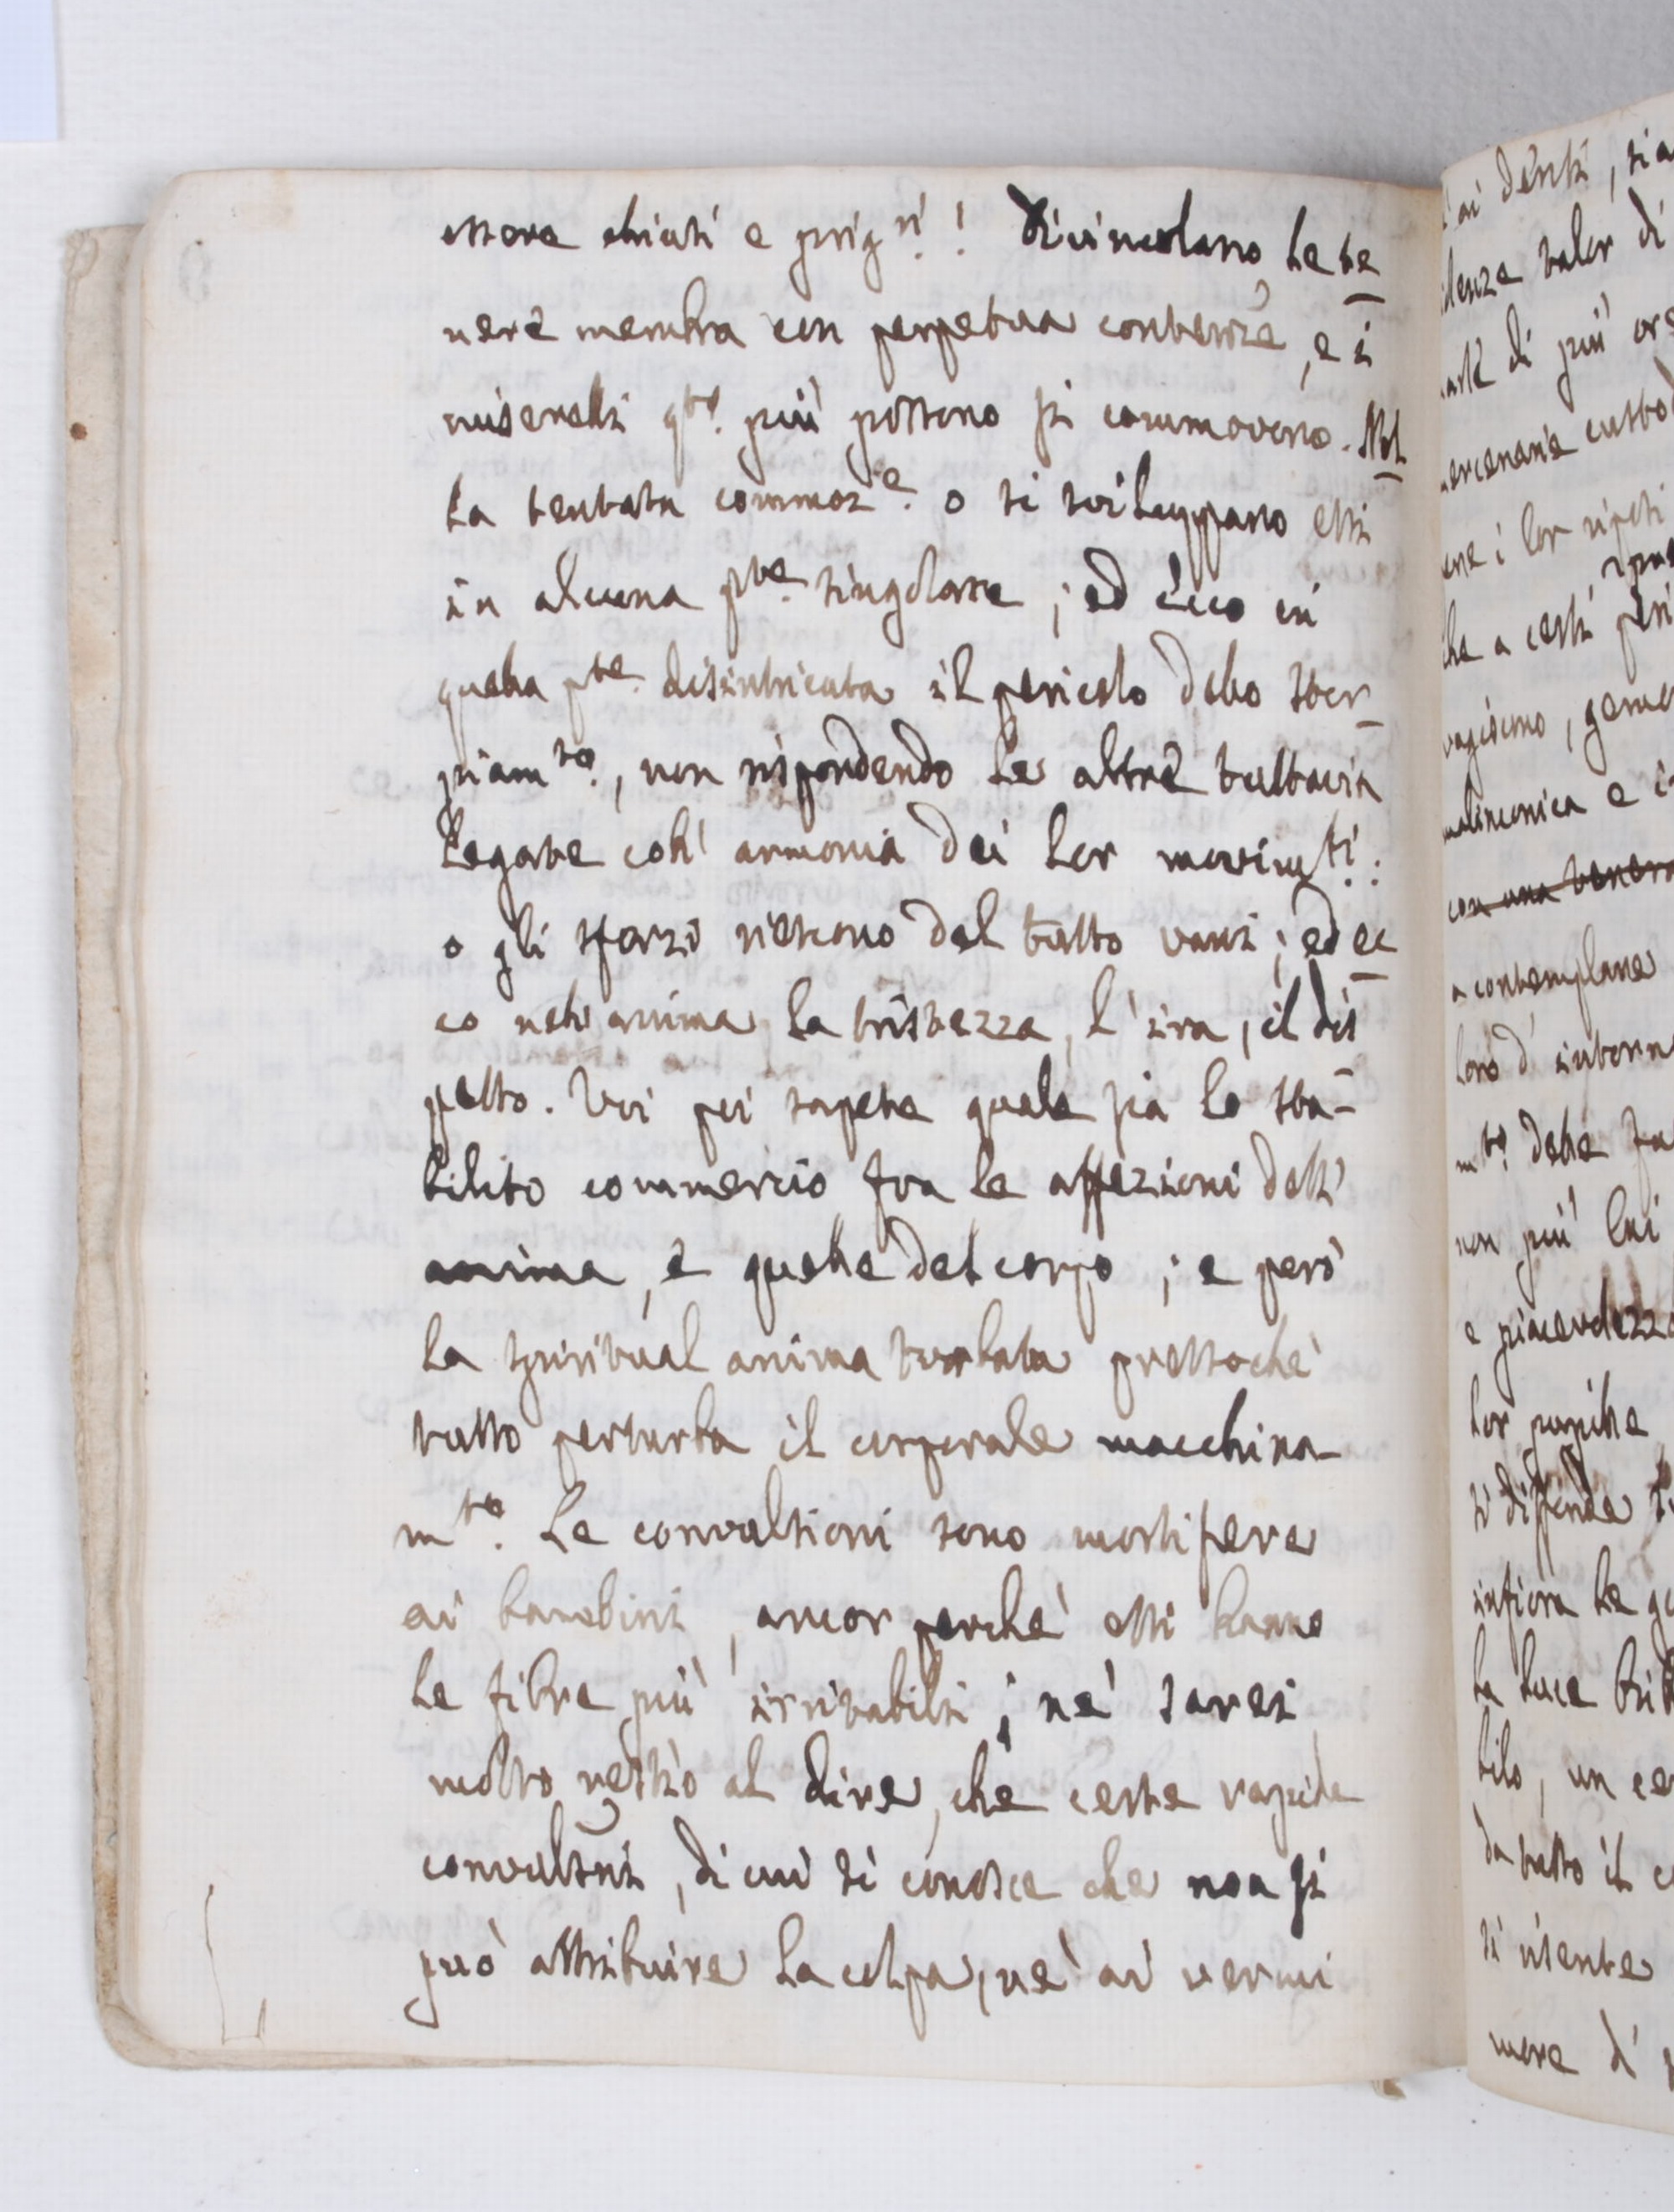 essere chiusi e prig.ni! Divincolano le te
nere membra con perpetua contenz.e, e i
miserelli q.to più possono si commovono. Nel
la tentata commoz.e o si sviluppano essi
in alcuna p.te singolare; ed ecco in
quella p.te disintricata il pericolo dello stor-
piam.to, non rispondendo le altre tuttavia
legate coll' armonia dei lor movim.ti:
o gli sforzi riescono del tutto vani; ed ec
co nell' anima la tristezza, l' ira, il dis
petto. Voi poi sapete quale sia lo sta-
bilito commercio fra le affezioni dell'
anima, e quelle del corpo; e però
la spiritual anima turbata pressochè
tutto perturba il corporale macchina-
m.to. Le convulsioni sono mortifere
ai bambini, ancor perchè essi hanno
le fibre più irritabili; nè sarei
molto restio al dire, che certe rapide
convulsni, di cui si conosce che non si
può attribuire la colpa, nè ai vermi
ai denti, sia
valor di
di più ore
mercenarie custo
i lor riposi
che a certi peri
vagiscono, geme
malinconica e i
con una tenera
a contemplare
loro d' intorn
m.to delle fa
non più lai
e piacevolezz
lor pupille
si diffonde
infiora le go
la luce bril
bilo, un ce
da tutto il c
si risente
more di